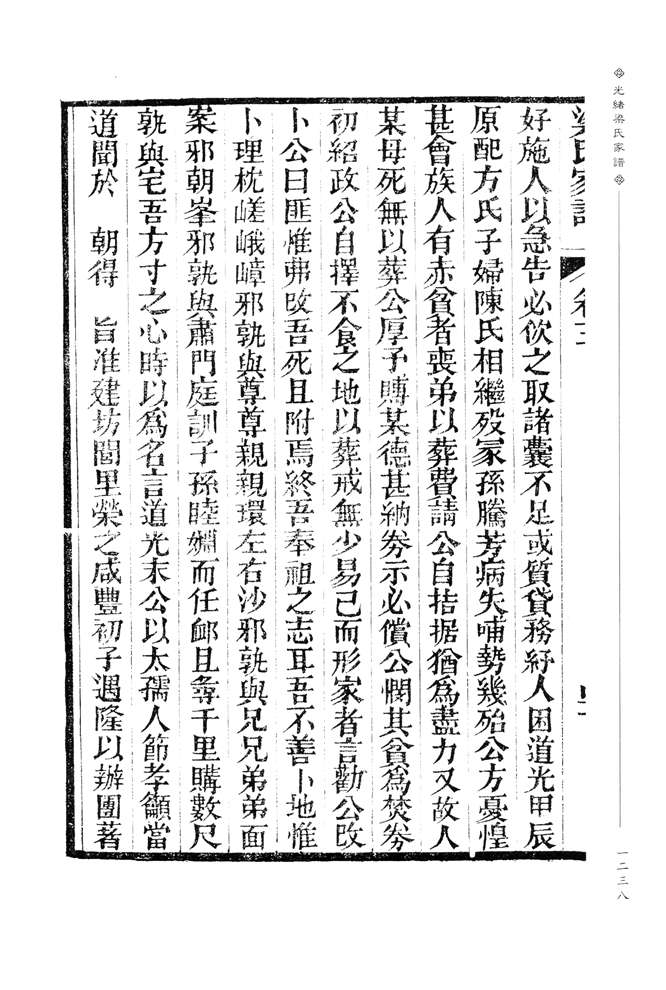 光緒梁氏家譜
一二三八
梁氏家譜 卷十二
好施人以急告必佽之取諸囊不足或質貸務紓人困道光甲辰
原配方氏子婦陳氏相繼歿冢孫騰芳病失哺勢幾殆公方憂惶
甚會族人有赤貧者喪弟以葬費請公自拮据猶為盡力又故人
某母死無以葬公厚予賻某德甚納劵示必償公憫其貧為焚劵
初紹政公自擇不食之地以葬戒無少易已而形家者言勸公改
卜公曰匪惟弗改吾死且附焉終吾奉祖之志耳吾不善卜地惟
卜理枕嵯峨嶂邪孰與尊尊親親環左右沙邪孰與兄兄弟弟面
案邪朝峯邪孰與肅門庭訓子孫睦婣而任䘏且尋千里購數尺
孰與宅吾方寸之心時以為名言道光末公以太孺人節孝籲當
道聞於　朝得　旨准建坊閭里榮之咸豐初子遇隆以辦團著